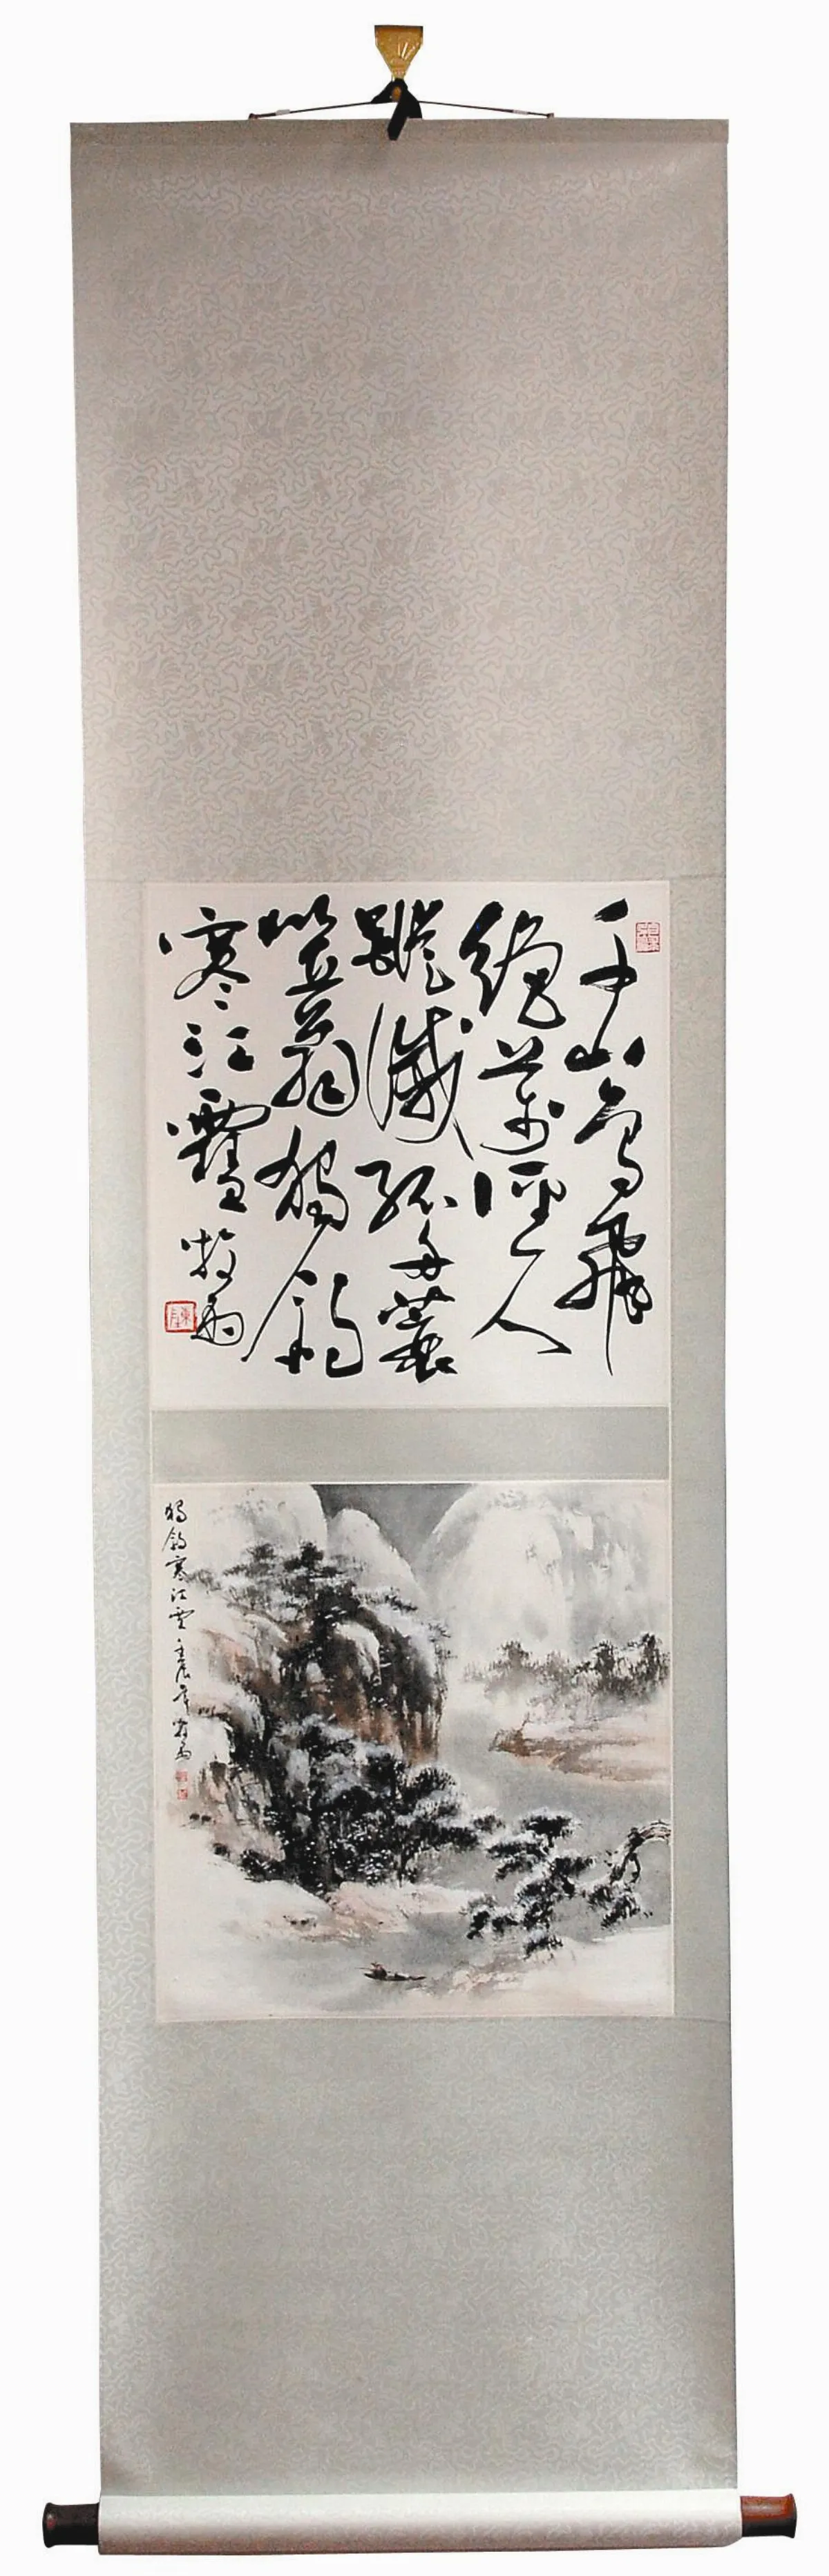 千山鳥飛
絕萬徑人
蹤滅孤舟蓑
笠翁獨釣
寒江雪 牧雨
獨釣寒江雪 壬辰年 牧雨